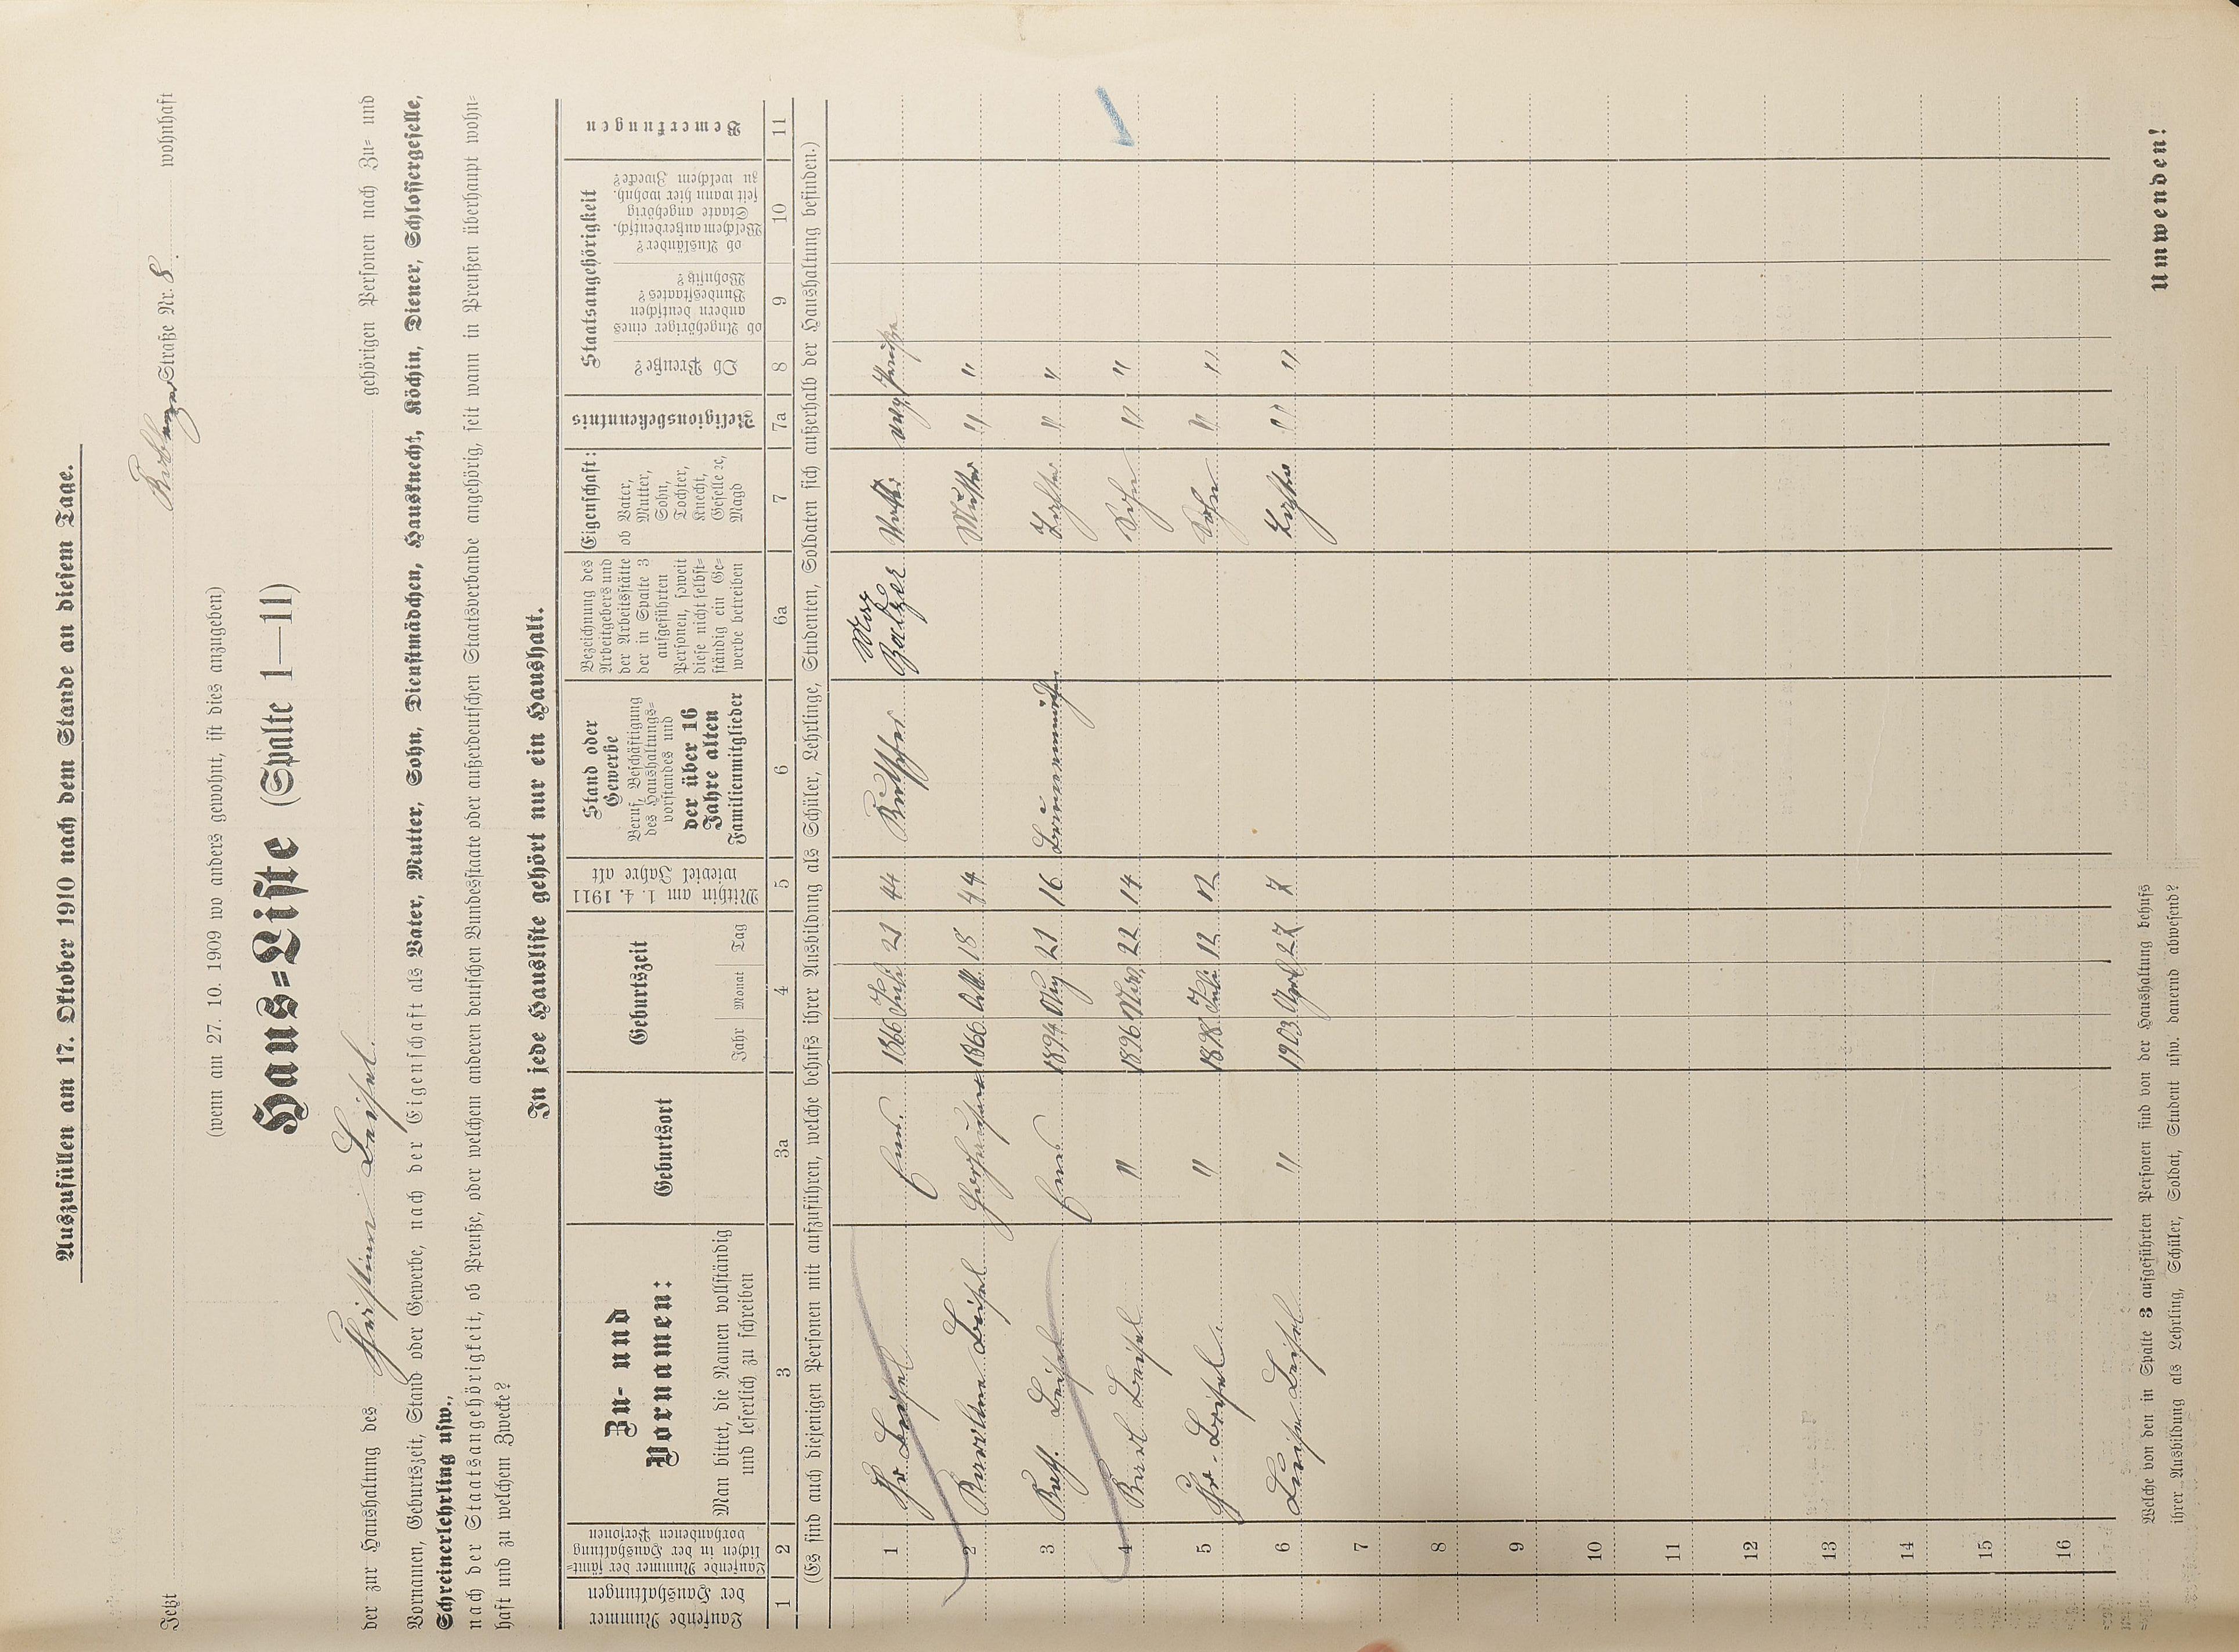 Auszufüllen am 17. Oktober 1910 nach dem Stande an diesem Tage.
Jetzt Straße Nr. 8 wohnhaft
(wenn am 27. 10. 1909 wo anders gewohnt, ist dies anzugeben)
Haus=Liste (Spalte 1—11)
der zur Haushaltung des Christian Leisel gehörigen Personen nach Zu= und
Vornamen, Geburtszeit, Stand oder Gewerbe, nach der Eigenschaft als Vater, Mutter, Sohn, Dienstmädchen, Hausknecht, Köchin, Diener, Schlossergeselle,
Schreinerlehrling usw.,
nach der Staatsangehörigkeit, ob Preuße, oder welchem anderen deutschen Bundesstaate oder außerdeutschen Staatsverbande angehörig, seit wann in Preußen überhaupt wohn=
haft und zu welchem Zwecke?
In jede Hausliste gehört nur ein Haushalt.
Laufende Nummer der Haushaltungen
Laufende Nummer der sämt=lichen in der Haushaltung vorhandenen Personen
Zu- und Vornamen:
Man bittet, die Namen vollständig und leserlich zu schreiben
Geburtsort
Geburtszeit
Jahr Monat Tag
Mithin am 1. 4. 1911 wieviel Jahre alt
Stand oder Gewerbe
Beruf, Beschäftigung des Haushaltungs=vorstandes und der über 16 Jahre alten Familienmitglieder
Bezeichnung des Arbeitgebers und der Arbeitsstätte der in Spalte 3 aufgeführten Personen, soweit diese nicht selbst=ständig ein Ge=werbe betreiben
Eigenschaft:
ob Vater, Mutter, Sohn, Tochter, Knecht, Geselle 2c, Magd
Religionsbekenntnis
Staatsangehörigkeit
Ob Preuße?
ob Angehöriger eines andern deutschen Bundesstaates? Wohnsitz?
ob Ausländer? Welchem außerdeutsch. Staate angehörig seit wann hier wohnh. zu welchem Zwecke?
Bemerkungen
1 2 3 3a 4 5 6 6a 7 7a 8 9 10 11
(Es sind auch diejenigen Personen mit aufzuführen, welche behufs ihrer Ausbildung als Schüler, Lehrlinge, Studenten, Soldaten sich außerhalb der Haushaltung befinden.)
1 Chr Leisel Ems. 1866 Juli 21 44 Kutscher Max Balzer Vater evg. Preuße
2 Karoline Leisel 1866 Okt. 18 44 Mutter " "
3 Kath. Leisel Ems 1894 Aug 21 16 Tochter " "
4 Karl Leisel " 1896 Nov. 22 14 Sohn " "
5 Chr. Leisel " 1898 Juli 12 12 Sohn " "
6 Luise Leisel " 1903 April 27 7 Tochter " "
7
8
9
10
11
12
13
14
15
16
Welche von den in Spalte 3 aufgeführten Personen sind von der Haushaltung behufs
ihrer Ausbildung als Lehrling, Schüler, Soldat, Student usw. dauernd abwesend?
Umwenden!